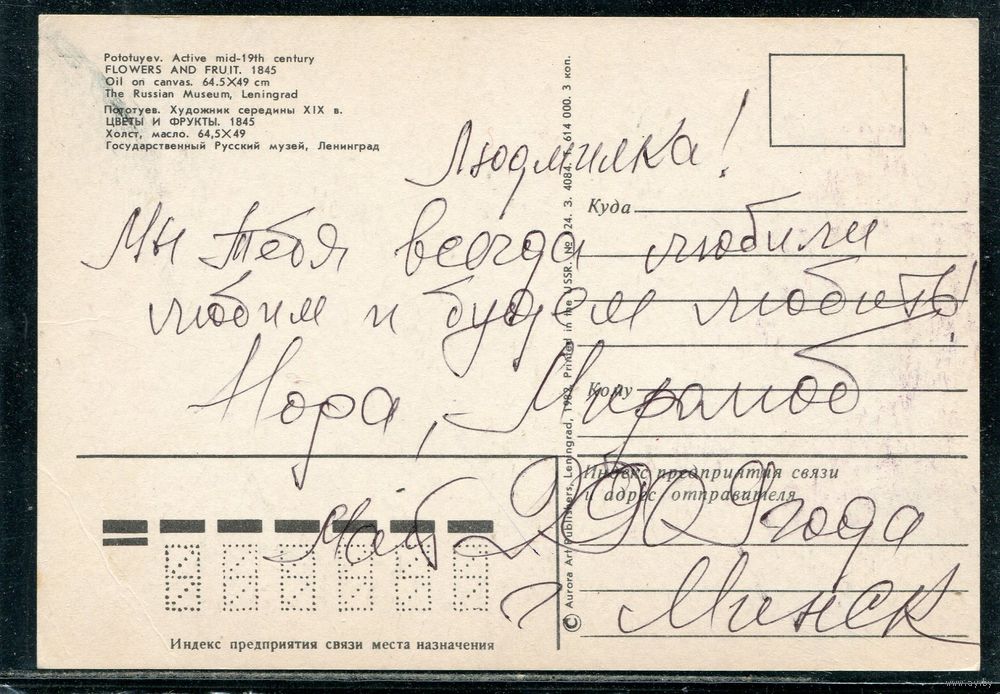 Pototuyev. Active mid-19th century
FLOWERS AND FRUIT. 1845
Oil on canvas. 64.5×49 cm
The Russian Museum, Leningrad
Пототуев. Художник середины XIX в.
ЦВЕТЫ И ФРУКТЫ. 1845
Холст, масло. 64,5×49
Государственный Русский музей, Ленинград
Людмилка!
Мы тебя всегда любили
любим и будем любить!
Нора,
Май 2002 года
г Минск
Куда
Кому
Индекс предприятия связи
и адрес отправителя
Индекс предприятия связи места назначения
© Aurora Art Publishers, Leningrad, 1983. Printed in the USSR. № 124. З. 4084. Т. 614 000. 3 коп.
www.ay.by